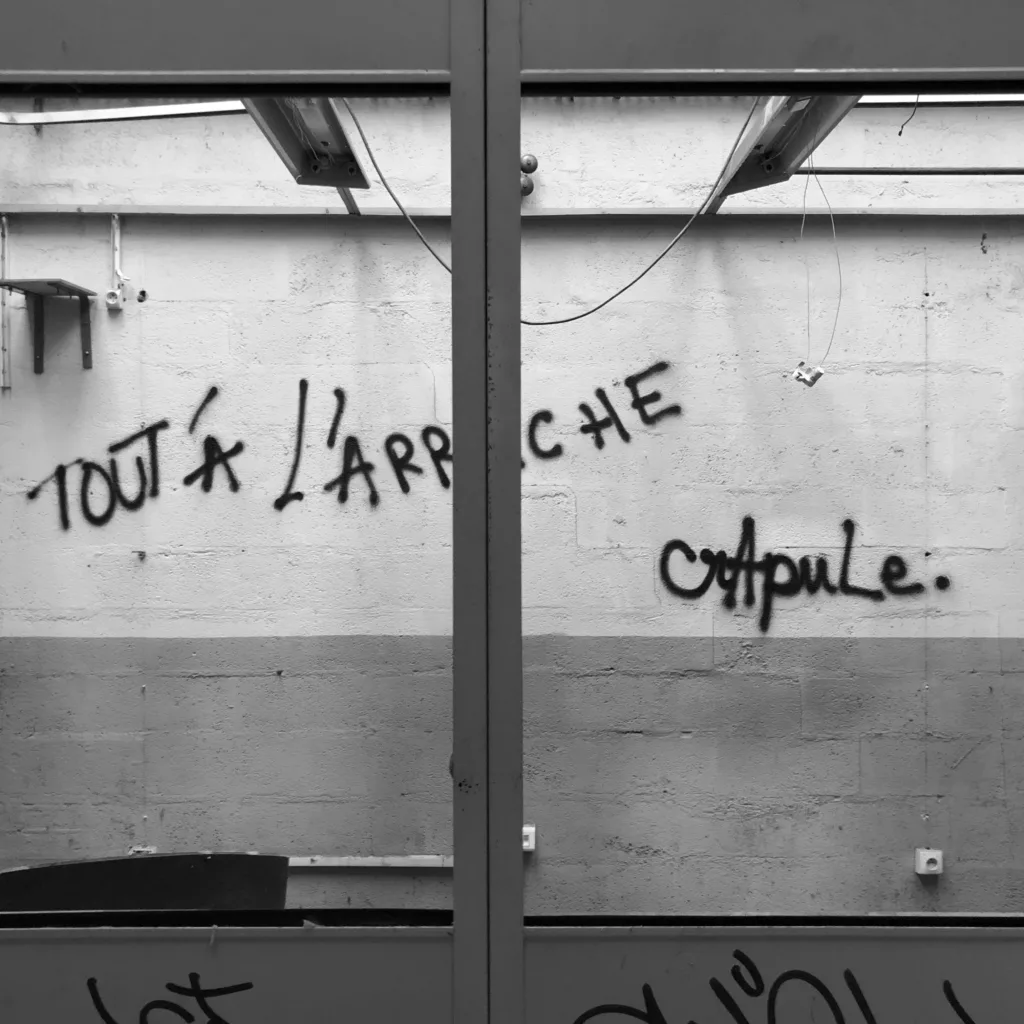 TOUT Á L'ARR CHE
CRAPULE.